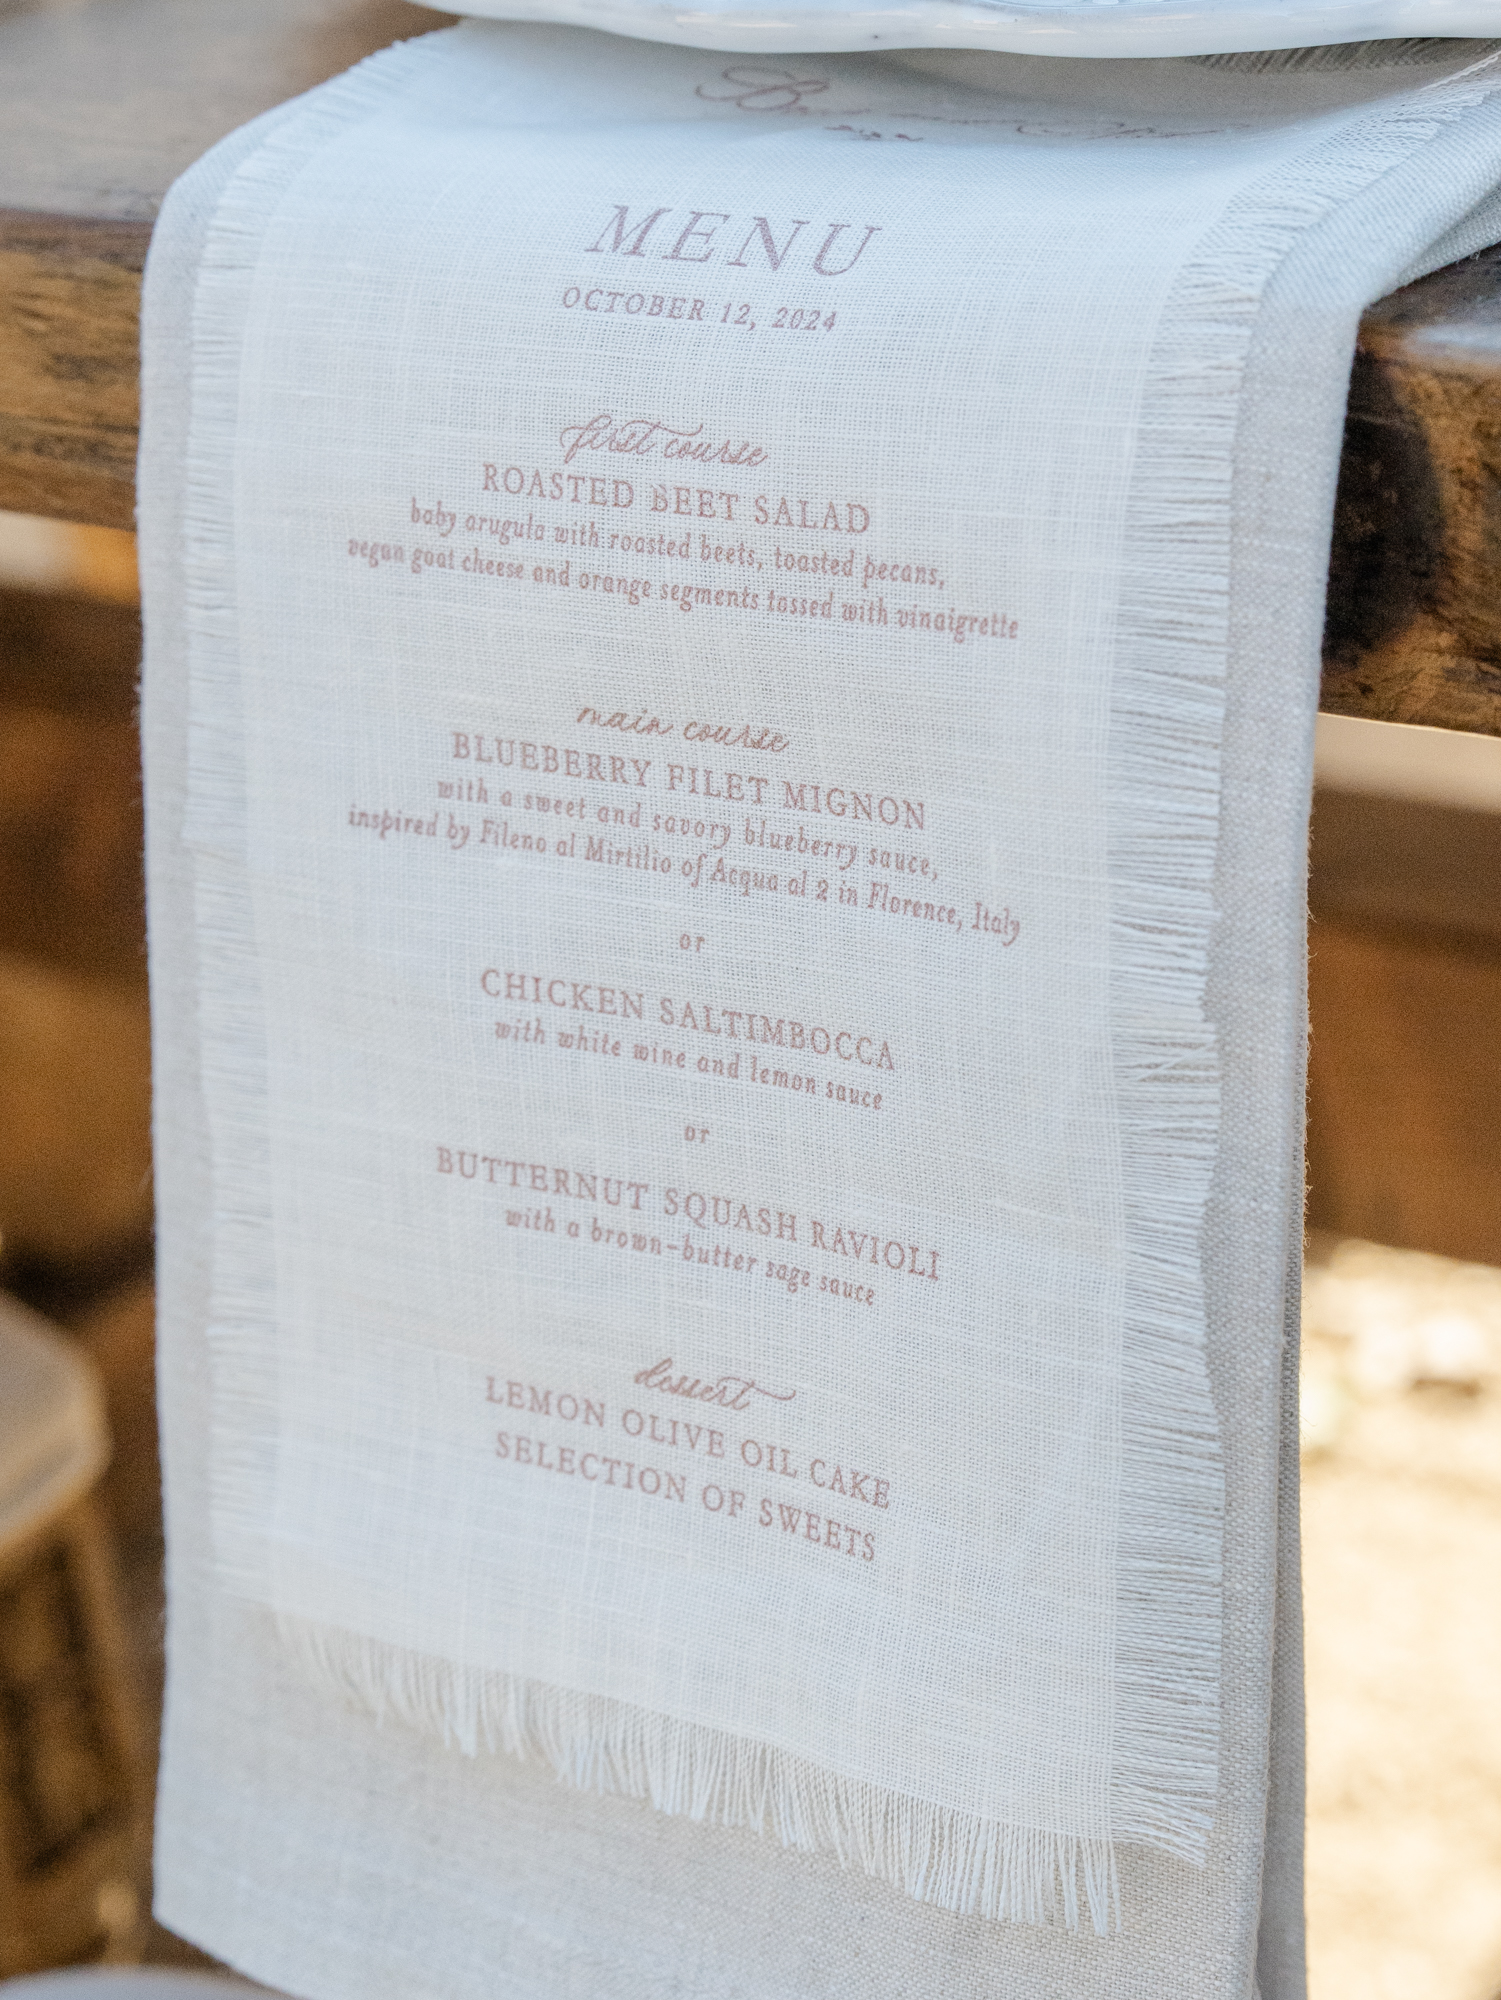 MENU
OCTOBER 12, 2024
first course
ROASTED BEET SALAD
baby arugula with roasted beets, toasted pecans,
vegan goat cheese and orange segments tossed with vinaigrette
main course
BLUEBERRY FILET MIGNON
with a sweet and savory blueberry sauce,
inspired by Fileno al Mirtilio of Acqua al 2 in Florence, Italy
or
CHICKEN SALTIMBOCCA
with white wine and lemon sauce
or
BUTTERNUT SQUASH RAVIOLI
with a brown-butter sage sauce
dessert
LEMON OLIVE OIL CAKE
SELECTION OF SWEETS